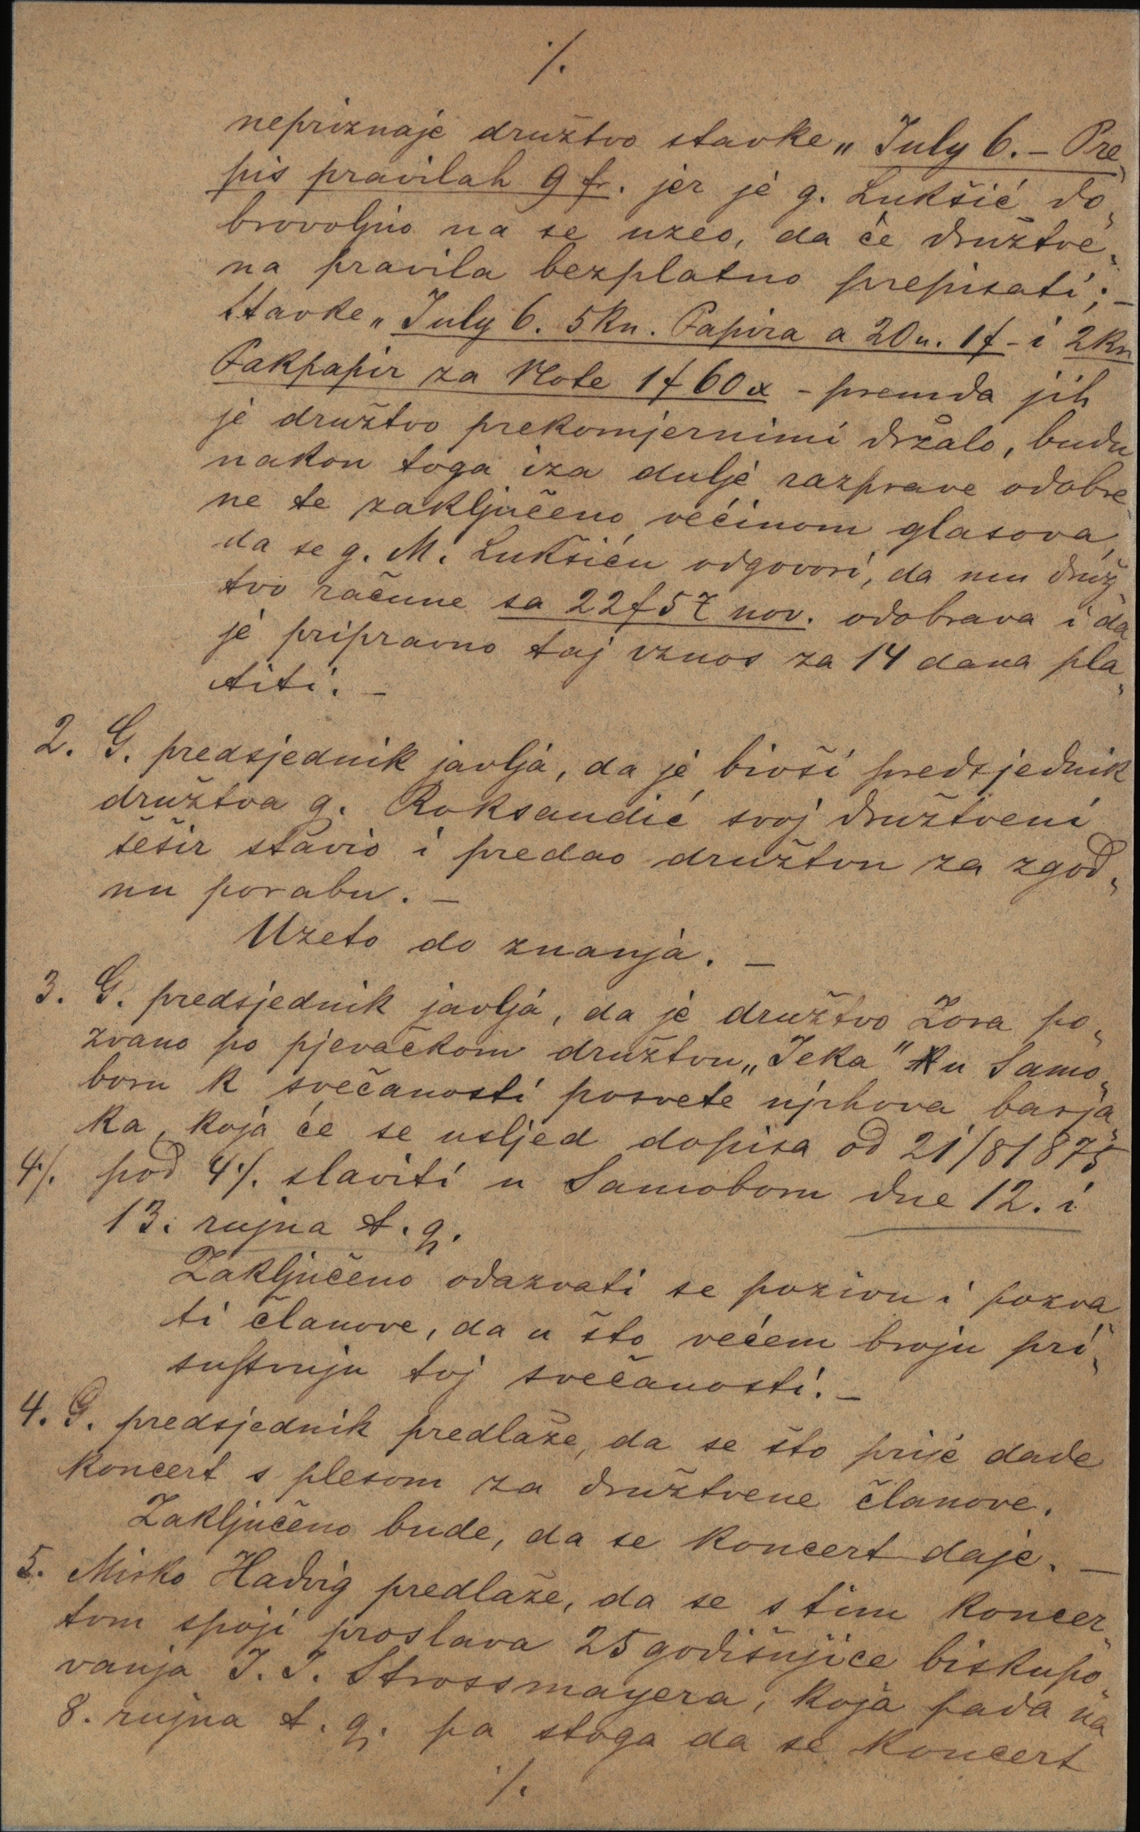 ·/.
nepriznaje družtvo stavke „July 6. – Pre„
pis pravilah 9 fr. jer je g. Lukšić do„
brovoljno na se uzeo, da će družtve„
na pravila bezplatno prepisati; –
stavke „July 6. 5 Kn. Papira a 20 n. 1 f – i 2 Kn
Pakpapir za Note 1 f 60 x – premda jih
je družtvo prekomjernimi držalo, budu
nakon toga iza dulje razprave odobre
ne te zaključeno većinom glasova,
da se g. M. Lukšiću odgovori, da mu druž
tvo račune sa 22 f 57 nov. odobrava i da
je pripravno taj iznos za 14 dana pla„
titi. –
2. G. predsjednik javlja, da je bivši predsjednik
družtva g. Roksandić svoj družtveni
šešir stavio i predao družtvu za zgod„
nu porabu. –
Uzeto do znanja. –
3. G. predsjednik javlja, da je družtvo Zora po„
zvano po pjevačkom družtvu „Jeka" u Samo„
boru k svečanosti posvete njihova barja„
ka, koja će se usljed dopisa od 21/8 1875
4/. pod 4·/. slaviti u Samoboru dne 12. i
13. rujna t. g.
Zaključeno odazvati se pozivu i pozva
ti članove, da u što većem broju pri„
sustvuju toj svečanosti. –
4. G. predsjednik predlaže, da se što prije dade
koncert s plesom za družtvene članove.
Zaključeno bude, da se koncert daje. –
5. Misko Hadvig predlaže, da se s tim koncer„
tom spoji proslava 25 godišnjice biskupo„
vanja J. J. Strossmayera, koja pada na
8. rujna t. g. pa stoga da se koncert
·/.